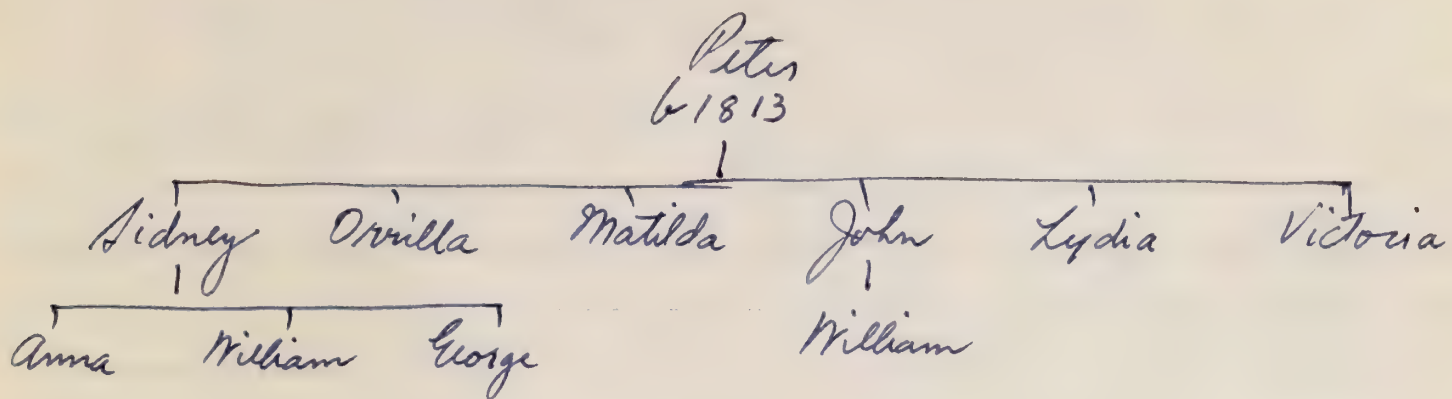 Peter
b 1813
Sidney Orrilla Matilda John Lydia Victoria
Anna William George William